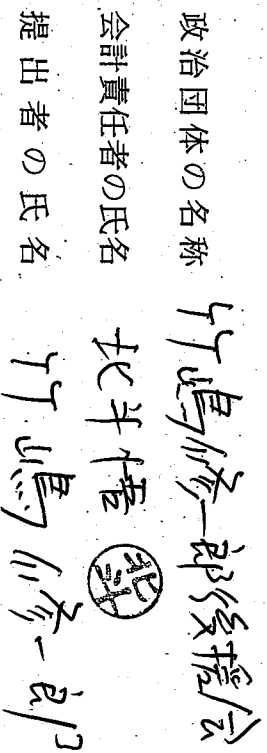 政治団体の名称 竹嶋修一郎後援会
会計責任者の氏名 北斗悟 北斗
提出者の氏名 竹嶋修一郎